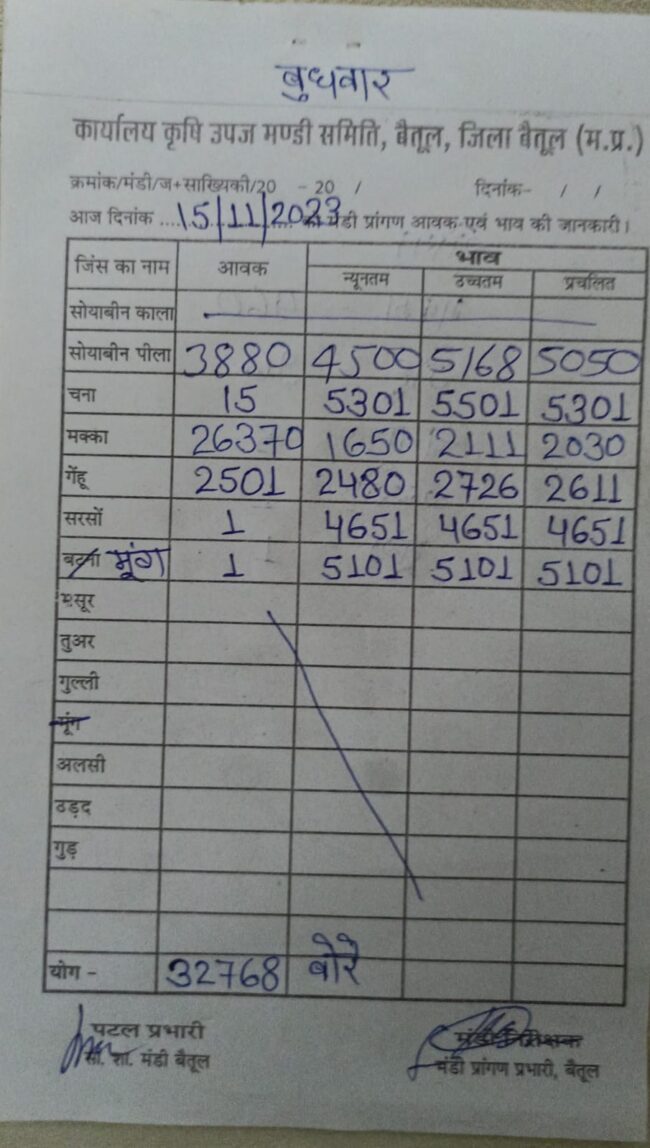 बुधवार
कार्यालय कृषि उपज मण्डी समिति, बैतूल, जिला बैतूल (म.प्र.)
क्रमांक/मंडी/ज+साख्यिकी/20 - 20 / दिनांक- / /
आज दिनांक ....15/11/2023.... को मंडी प्रांगण आवक एवं भाव की जानकारी।
जिंस का नाम आवक भाव
न्यूनतम उच्चतम प्रचलित
सोयाबीन काला
सोयाबीन पीला 3880 4500 5168 5050
चना 15 5301 5501 5301
मक्का 26370 1650 2111 2030
गेंहू 2501 2480 2726 2611
सरसों 1 4651 4651 4651
बटना मूंग 1 5101 5101 5101
मसूर
तुअर
गुल्ली
मूंग
अलसी
उड़द
गुड़
योग - 32768 बोरे
पटल प्रभारी
सां. शा. मंडी बैतूल
मंडी निरीक्षक
मंडी प्रांगण प्रभारी, बैतूल